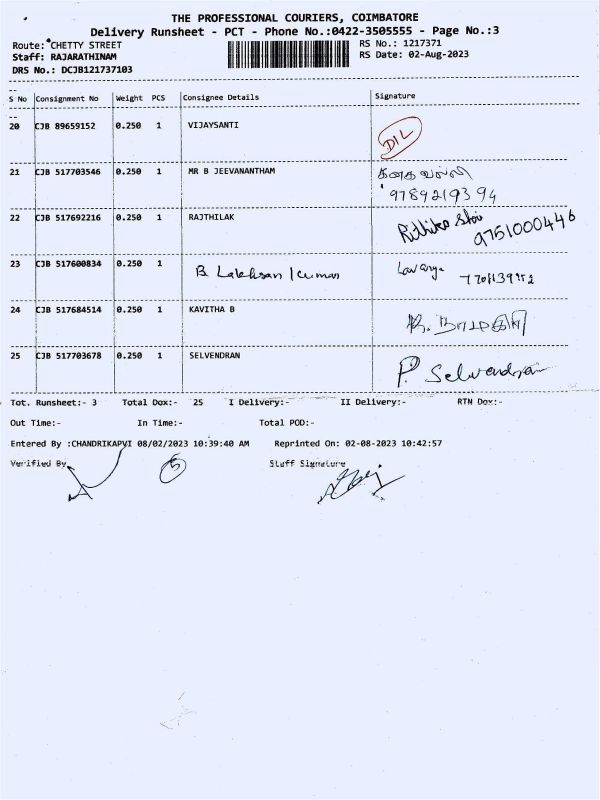 THE PROFESSIONAL COURIERS, COIMBATORE
Delivery Runsheet - PCT - Phone No.:0422-3505555 - Page No.:3
Route: CHETTY STREET
RS No.: 1217371
Staff: RAJARATHINAM
RS Date: 02-Aug-2023
DRS No.: DCJB121737103
S No Consignment No Weight PCS Consignee Details Signature
20 CJB 89659152 0.250 1 VIJAYSANTI
DIL
21 CJB 517703546 0.250 1 MR B JEEVANANTHAM
9789219394
22 CJB 517692216 0.250 1 RAJTHILAK
9751000446
23 CJB 517600834 0.250 1 B. Lakhsan kuman Lavanya
24 CJB 517684514 0.250 1 KAVITHA B
25 CJB 517703678 0.250 1 SELVENDRAN P. Selvendran
Tot. Runsheet:- 3 Total Dox:- 25 I Delivery:- II Delivery:- RTN Dox:-
Out Time:- In Time:- Total POD:-
Entered By :CHANDRIKAPVI 08/02/2023 10:39:40 AM Reprinted On: 02-08-2023 10:42:57
Verified By Staff Signature
5